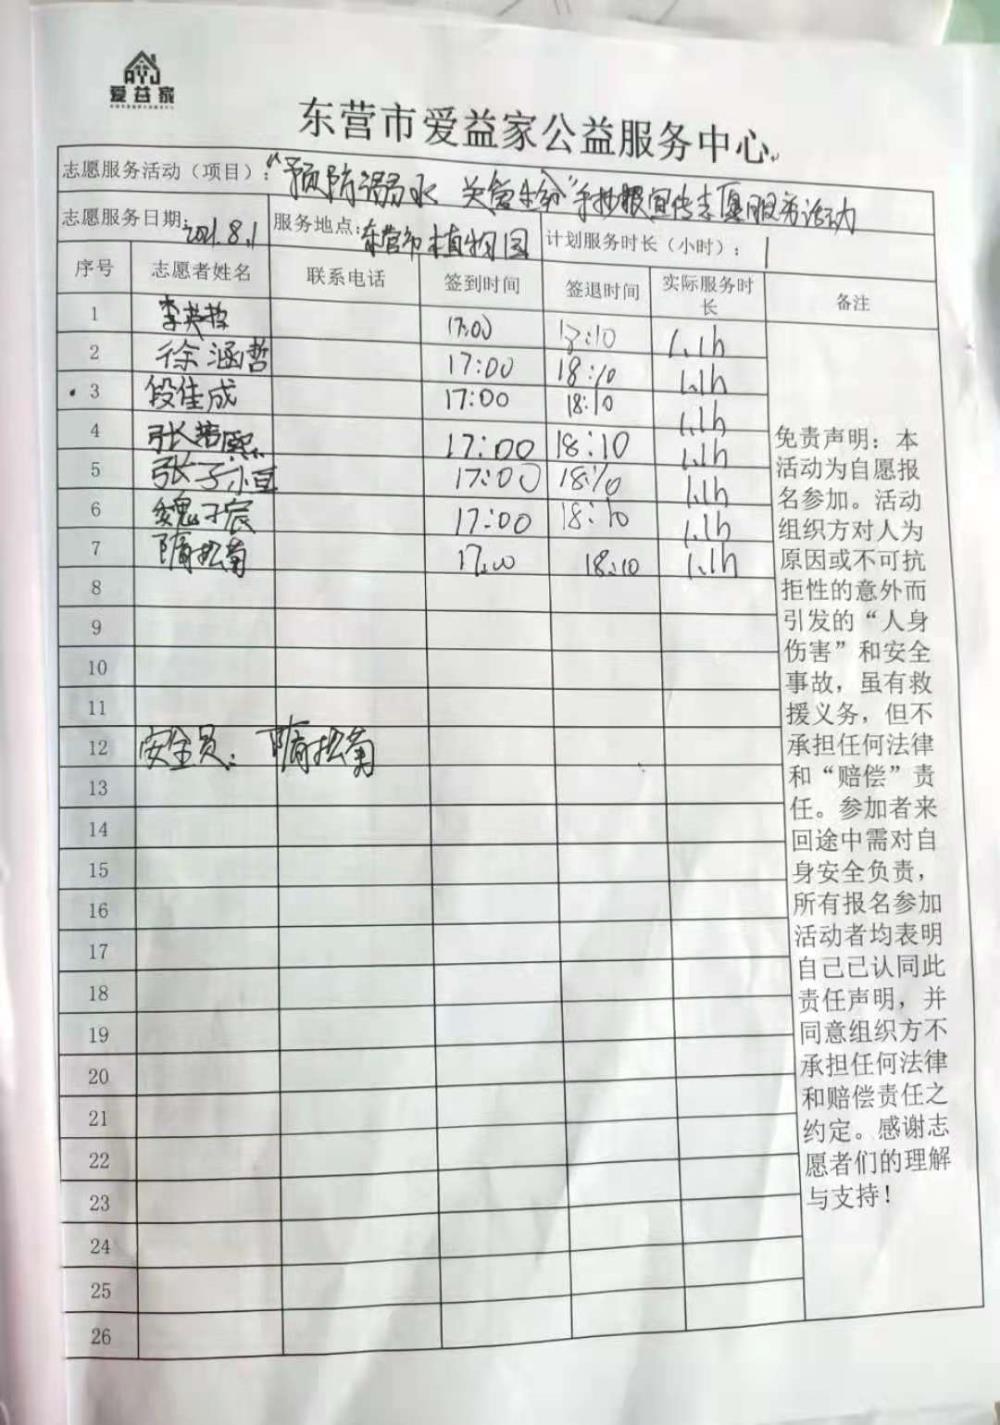 爱益家
东营市爱益家公益服务中心
志愿服务活动（项目）：“预防溺水 关爱生命”手抄报宣传志愿服务活动
志愿服务日期：2021.8.1 服务地点：东营市植物园 计划服务时长（小时）：1
序号 志愿者姓名 联系电话 签到时间 签退时间 实际服务时长 备注
1 李英哲 17:00 18:10 1.1h
2 徐涵哲 17:00 18:10 1.1h
3 段佳成 17:00 18:10 1.1h
4 张 熙 17:00 18:10 1.1h
5 张子 17:00 18:10 1.1h
6 魏子宸 17:00 18:10 1.1h
7 隋松菊 17:00 18:10 1.1h
8
9
10
11
12 安全员：隋松菊
13
14
15
16
17
18
19
20
21
22
23
24
25
26
免责声明：本
活动为自愿报
名参加。活动
组织方对人为
原因或不可抗
拒性的意外而
引发的“人身
伤害”和安全
事故，虽有救
援义务，但不
承担任何法律
和“赔偿”责
任。参加者来
回途中需对自
身安全负责，
所有报名参加
活动者均表明
自己已认同此
责任声明，并
同意组织方不
承担任何法律
和赔偿责任之
约定。感谢志
愿者们的理解
与支持！